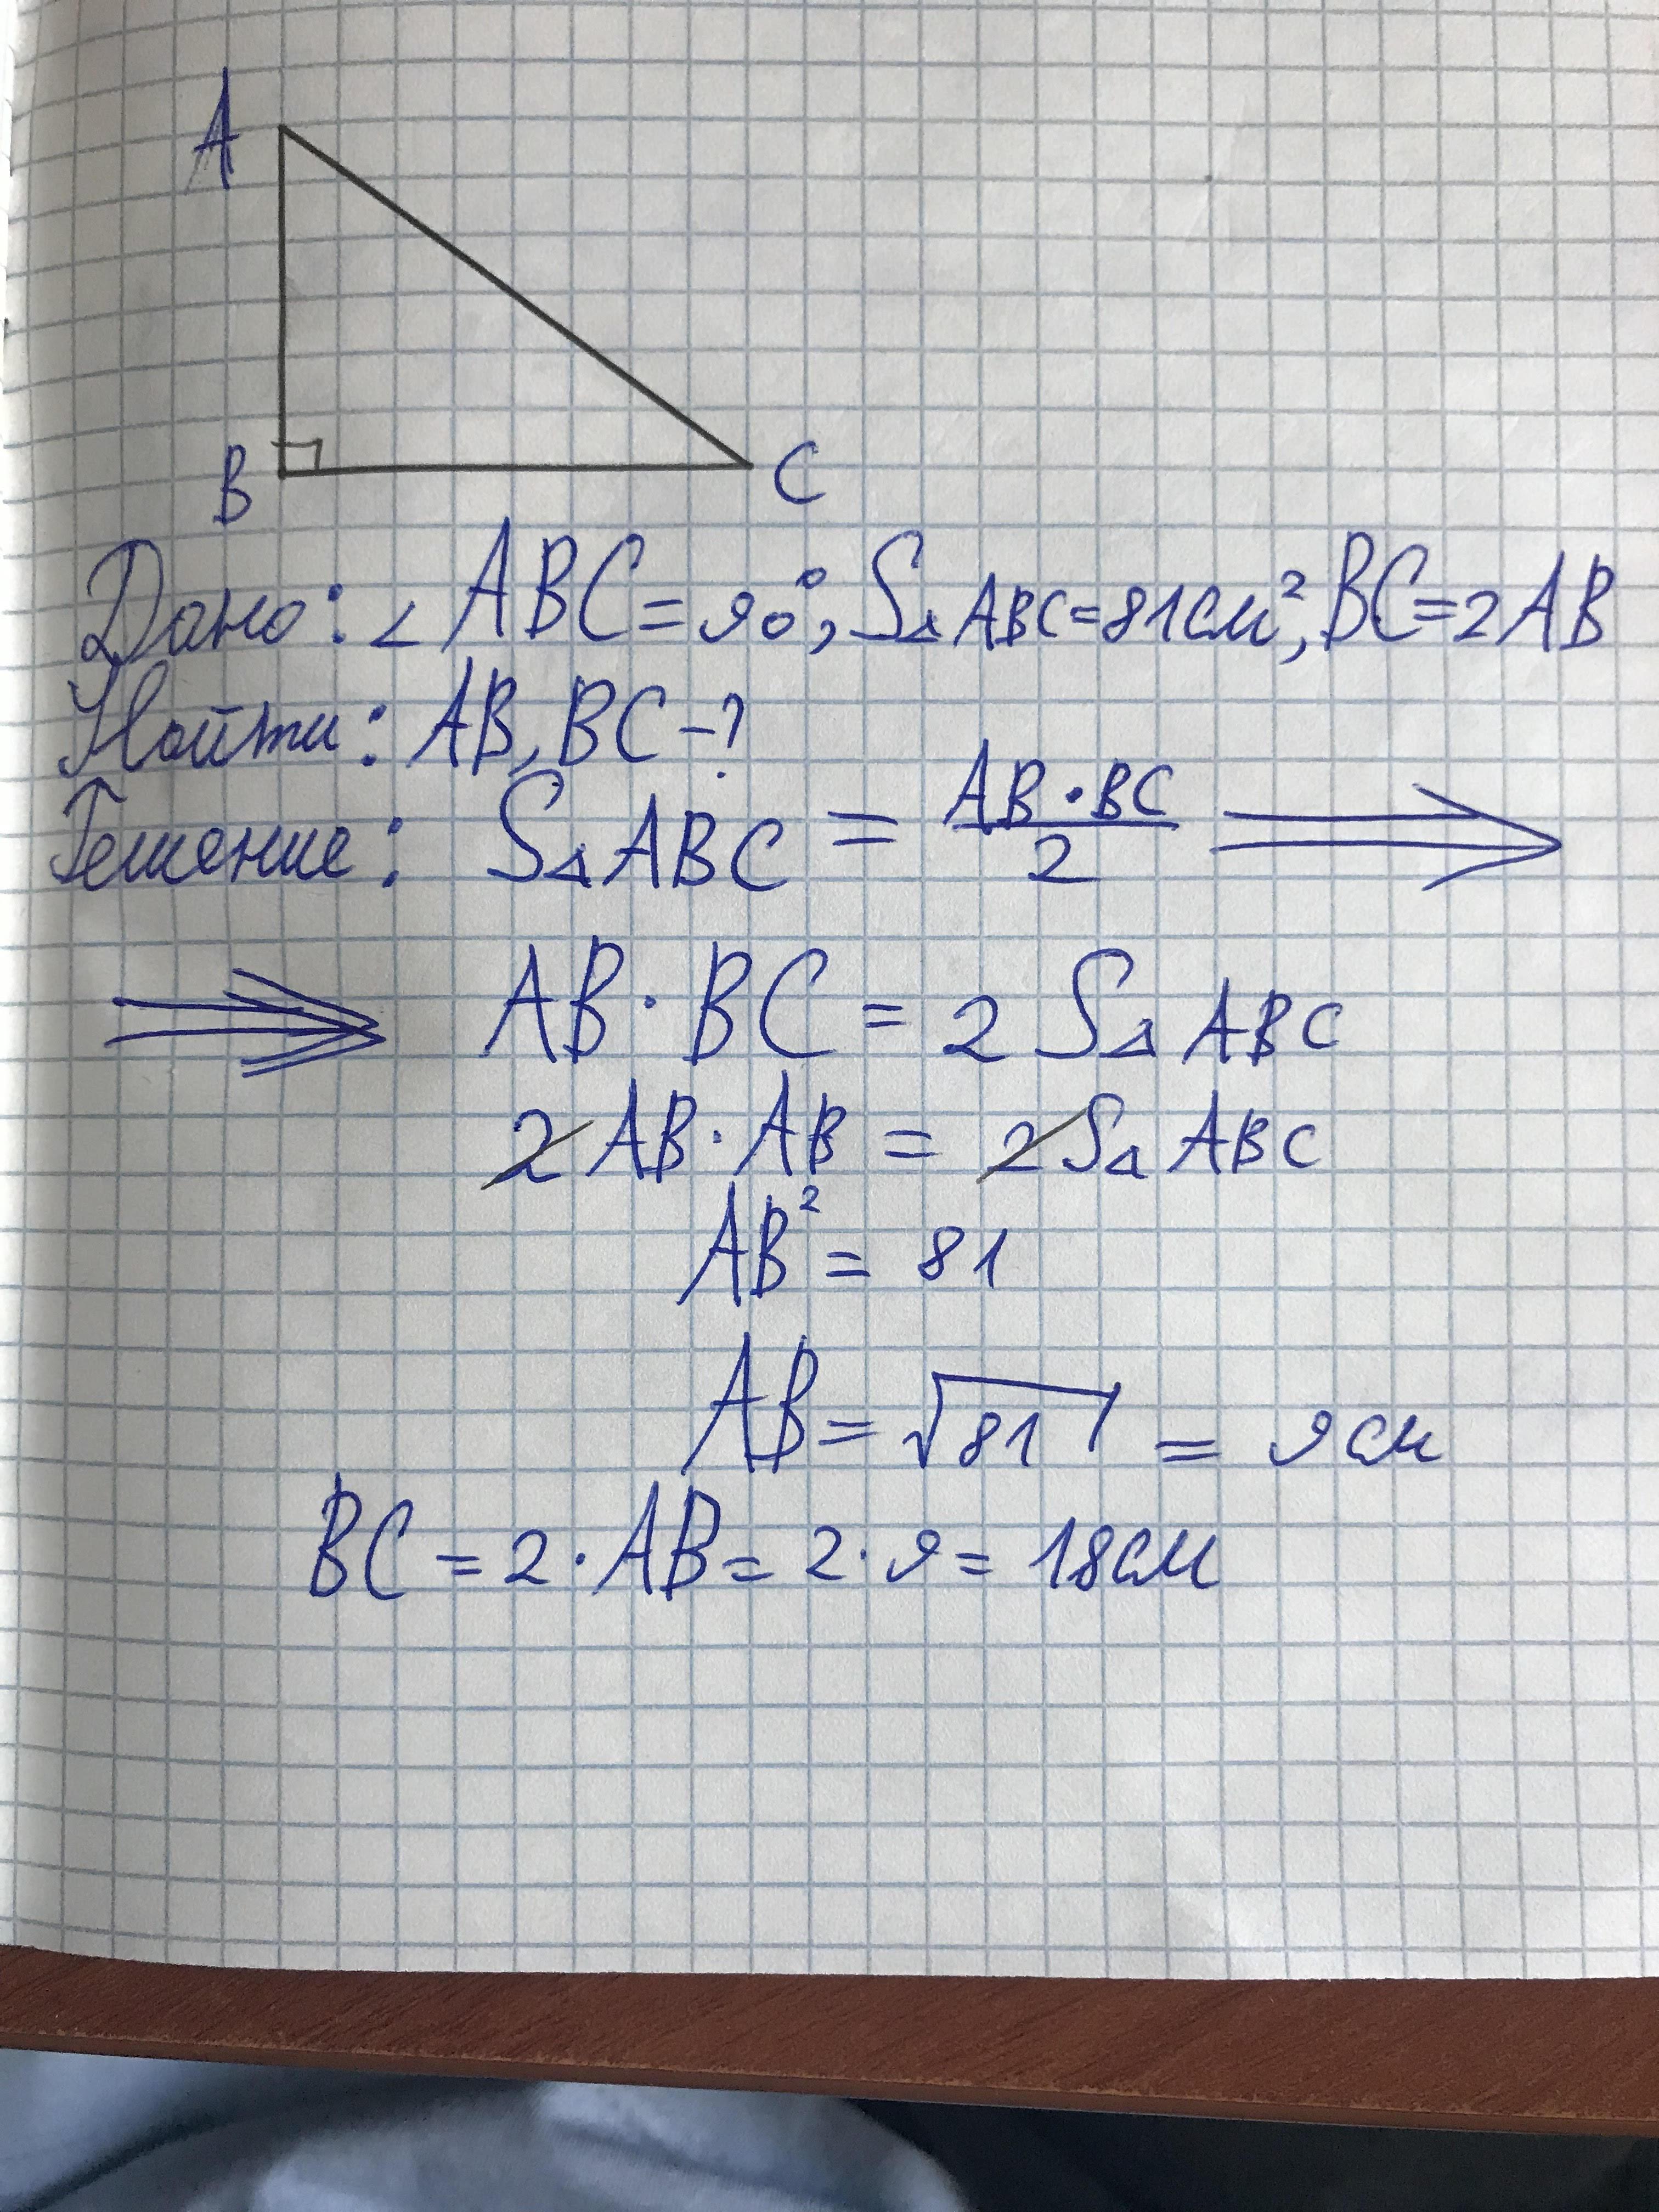 A
B
C
Дано: ∠ABC=90°, S△ABC=81см², BC=2AB
Найти: AB, BC-?
Решение: S△ABC = AB·BC/2 ⟹
⟹ AB·BC = 2S△ABC
2AB·AB = 2S△ABC
AB² = 81
AB = √81 = 9см
BC = 2·AB = 2·9 = 18см